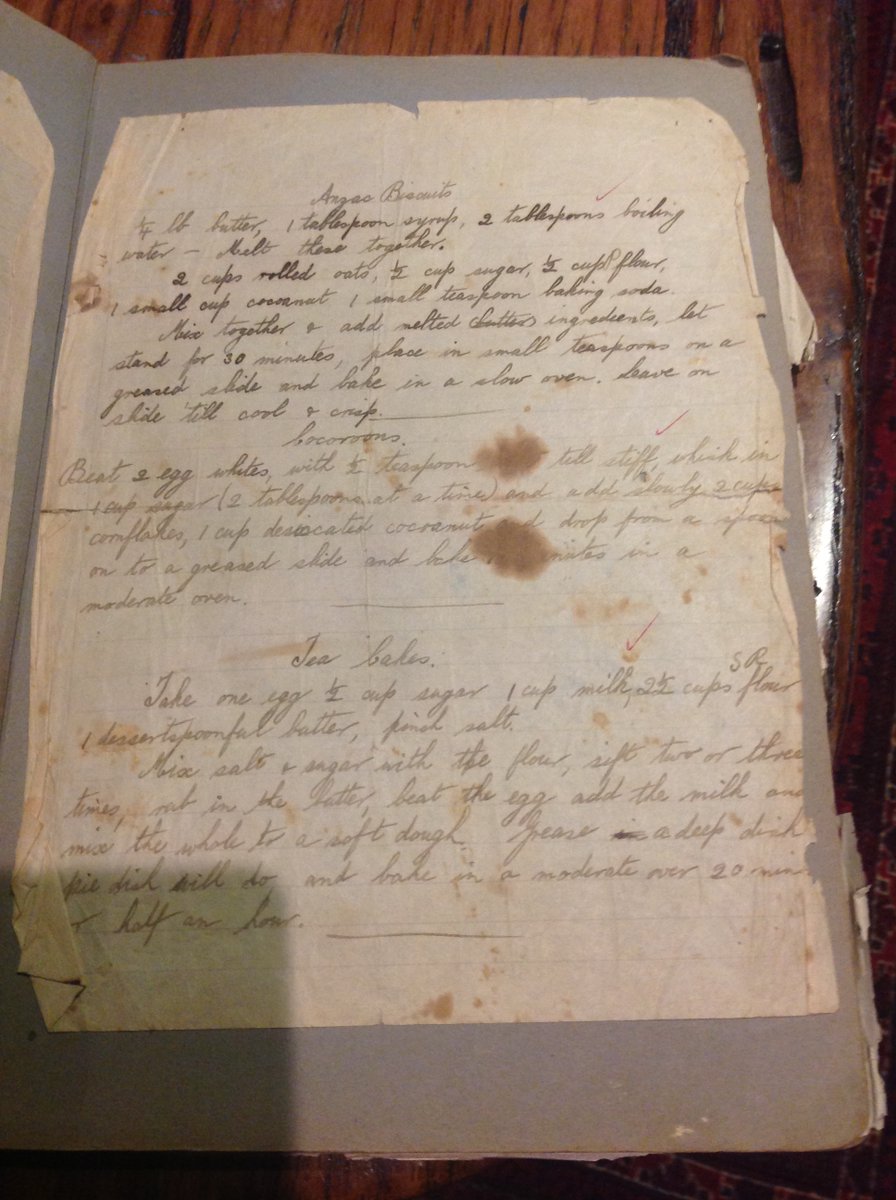 Anzac Biscuits
¼ lb butter, 1 tablespoon syrup, 2 tablespoons boiling
water – Melt these together.
2 cups rolled oats, ½ cup sugar, ½ cup flour,
1 small cup cocoanut 1 small teaspoon baking soda.
Mix together & add melted butter ingredients, let
stand for 30 minutes, place in small teaspoons on a
greased slide and bake in a slow oven. Leave on
slide 'till cool & crisp.
Cocoroons.
Beat 2 egg whites, with ½ teaspoon till stiff, whisk in
1 cup sugar (2 tablespoons at a time) and add slowly 2 cups
cornflakes, 1 cup desicated cocoanut and drop from a spoon
on to a greased slide and bake in a
moderate oven.
Tea Cakes.
S R
Take one egg ½ cup sugar 1 cup milk, 2½ cups flour
1 dessertspoonful butter, pinch salt.
Mix salt & sugar with the flour, sift two or three
times, rub in the butter, beat the egg add the milk and
mix the whole to a soft dough. Grease a deep dish
pie dish will do and bake in a moderate over 20 min
or half an hour.